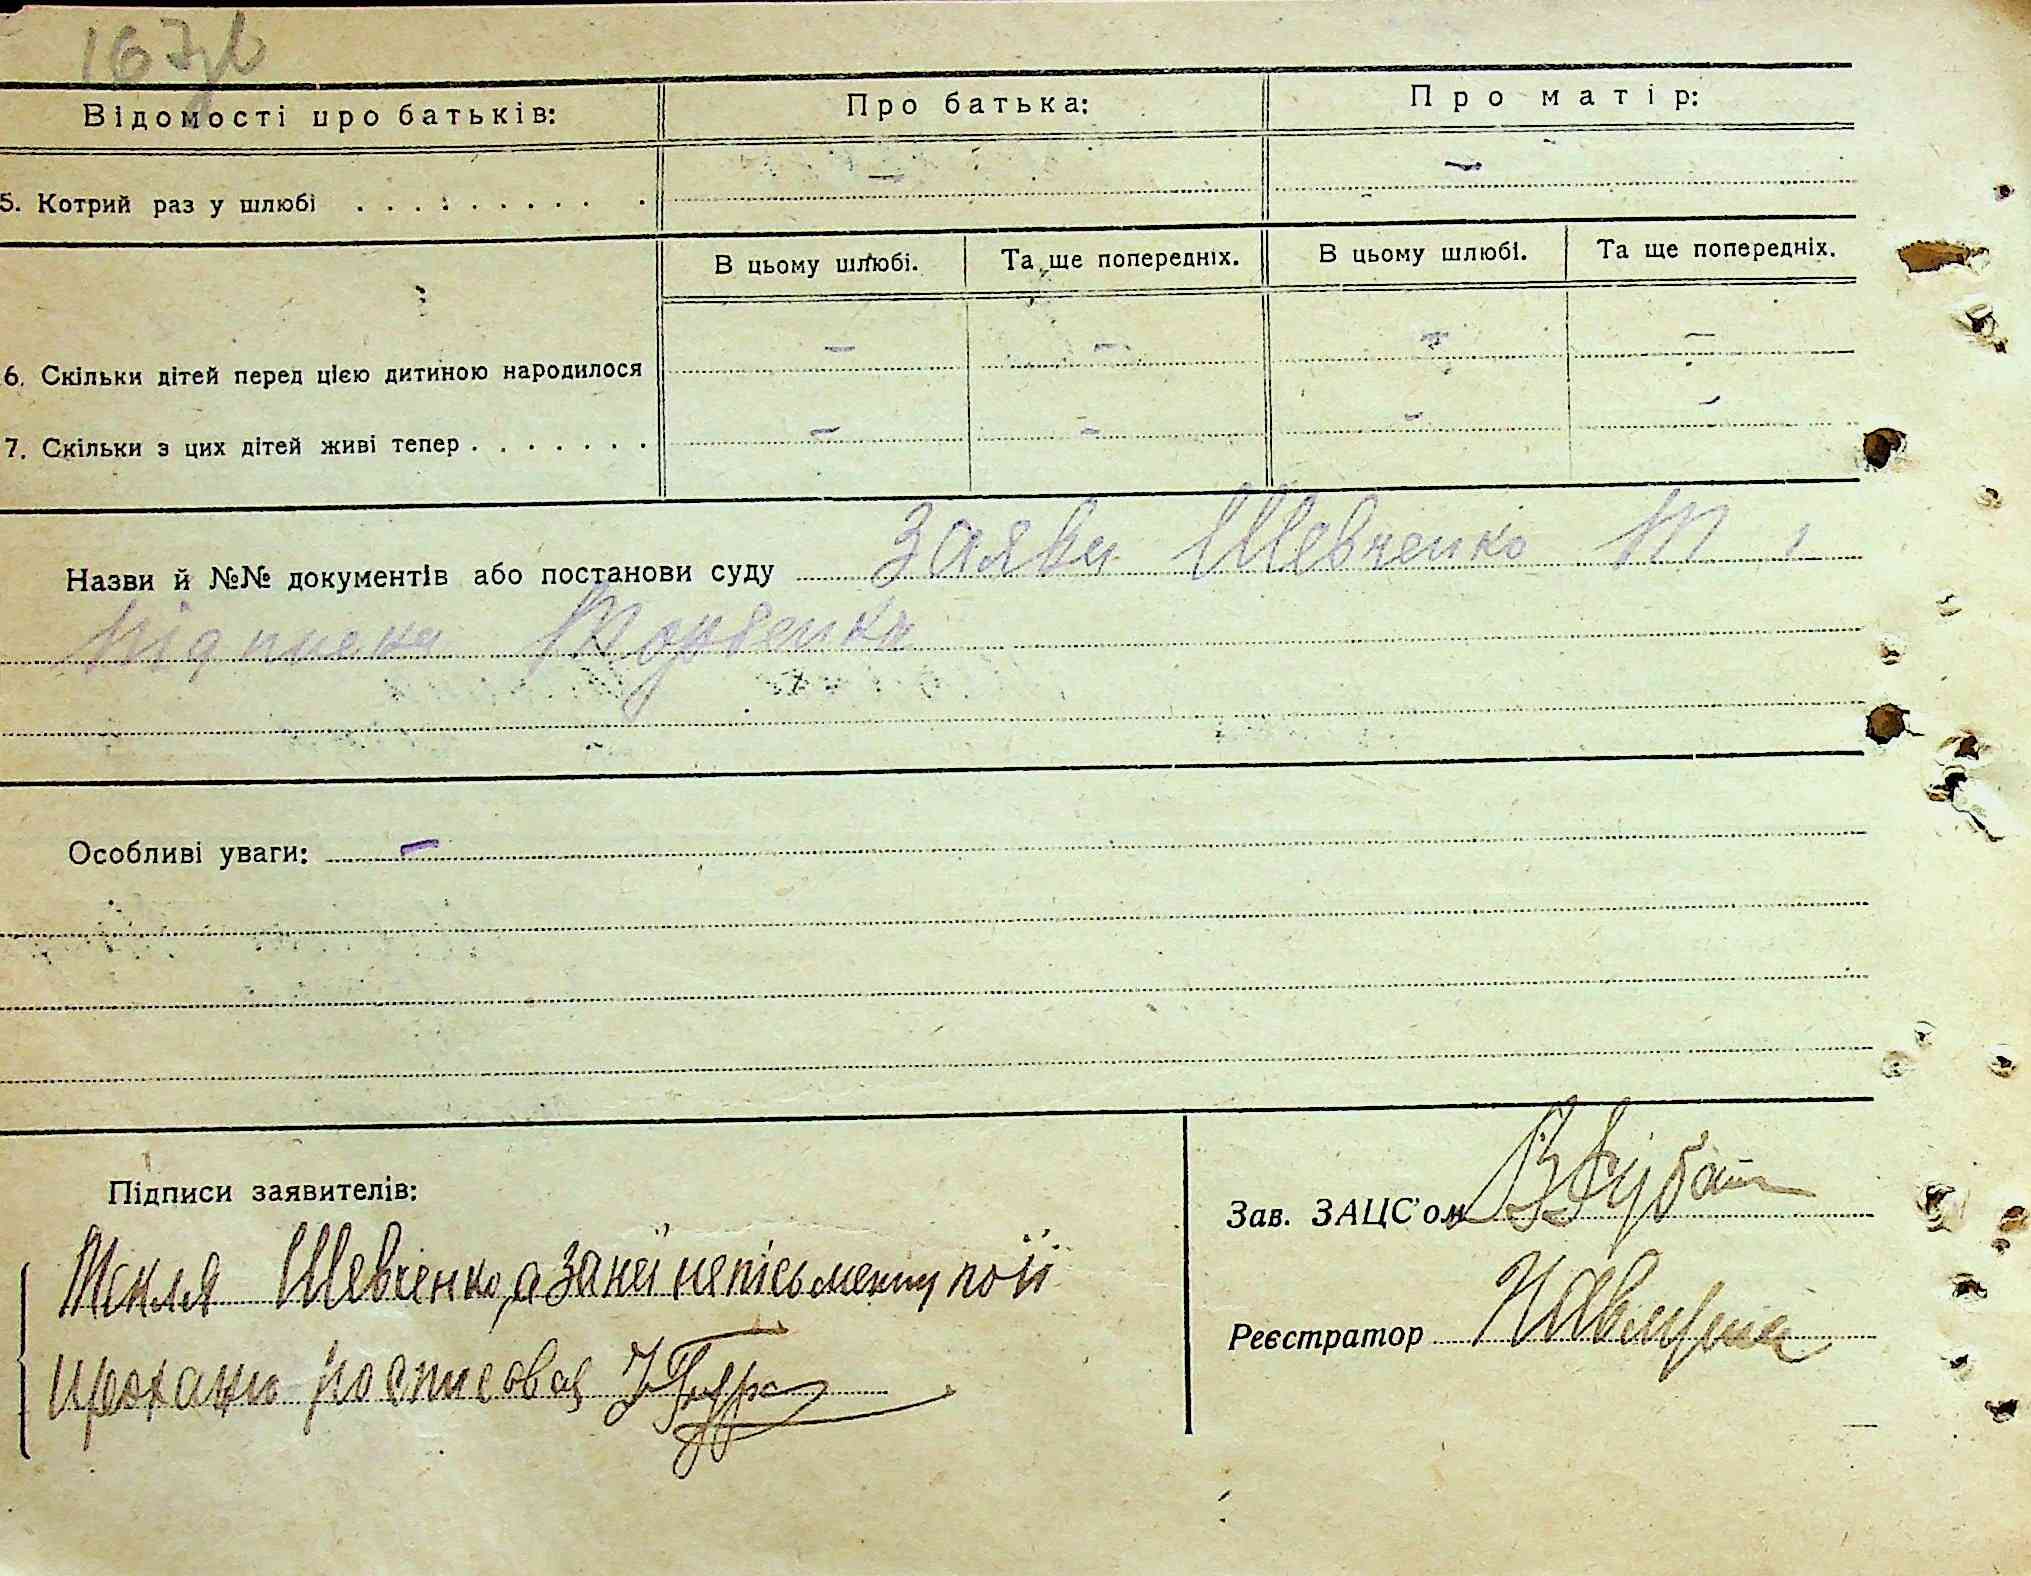 167зв
Відомості про батьків: Про батька: Про матір:
5. Котрий раз у шлюбі . . . . . . . . . . – –
В цьому шлюбі. Та ще попередніх. В цьому шлюбі. Та ще попередніх.
6. Скільки дітей перед цією дитиною народилося – – – –
7. Скільки з цих дітей живі тепер . . . . . . . – – – –
Назви й №№ документів або постанови суду Заява Шевченко Т і
підписка
Особливі уваги: –
Підписи заявителів: Зав. ЗАЦС'ом
Текля Шевченко, а за неї неписьменну по її
проханню росписовся Реєстратор